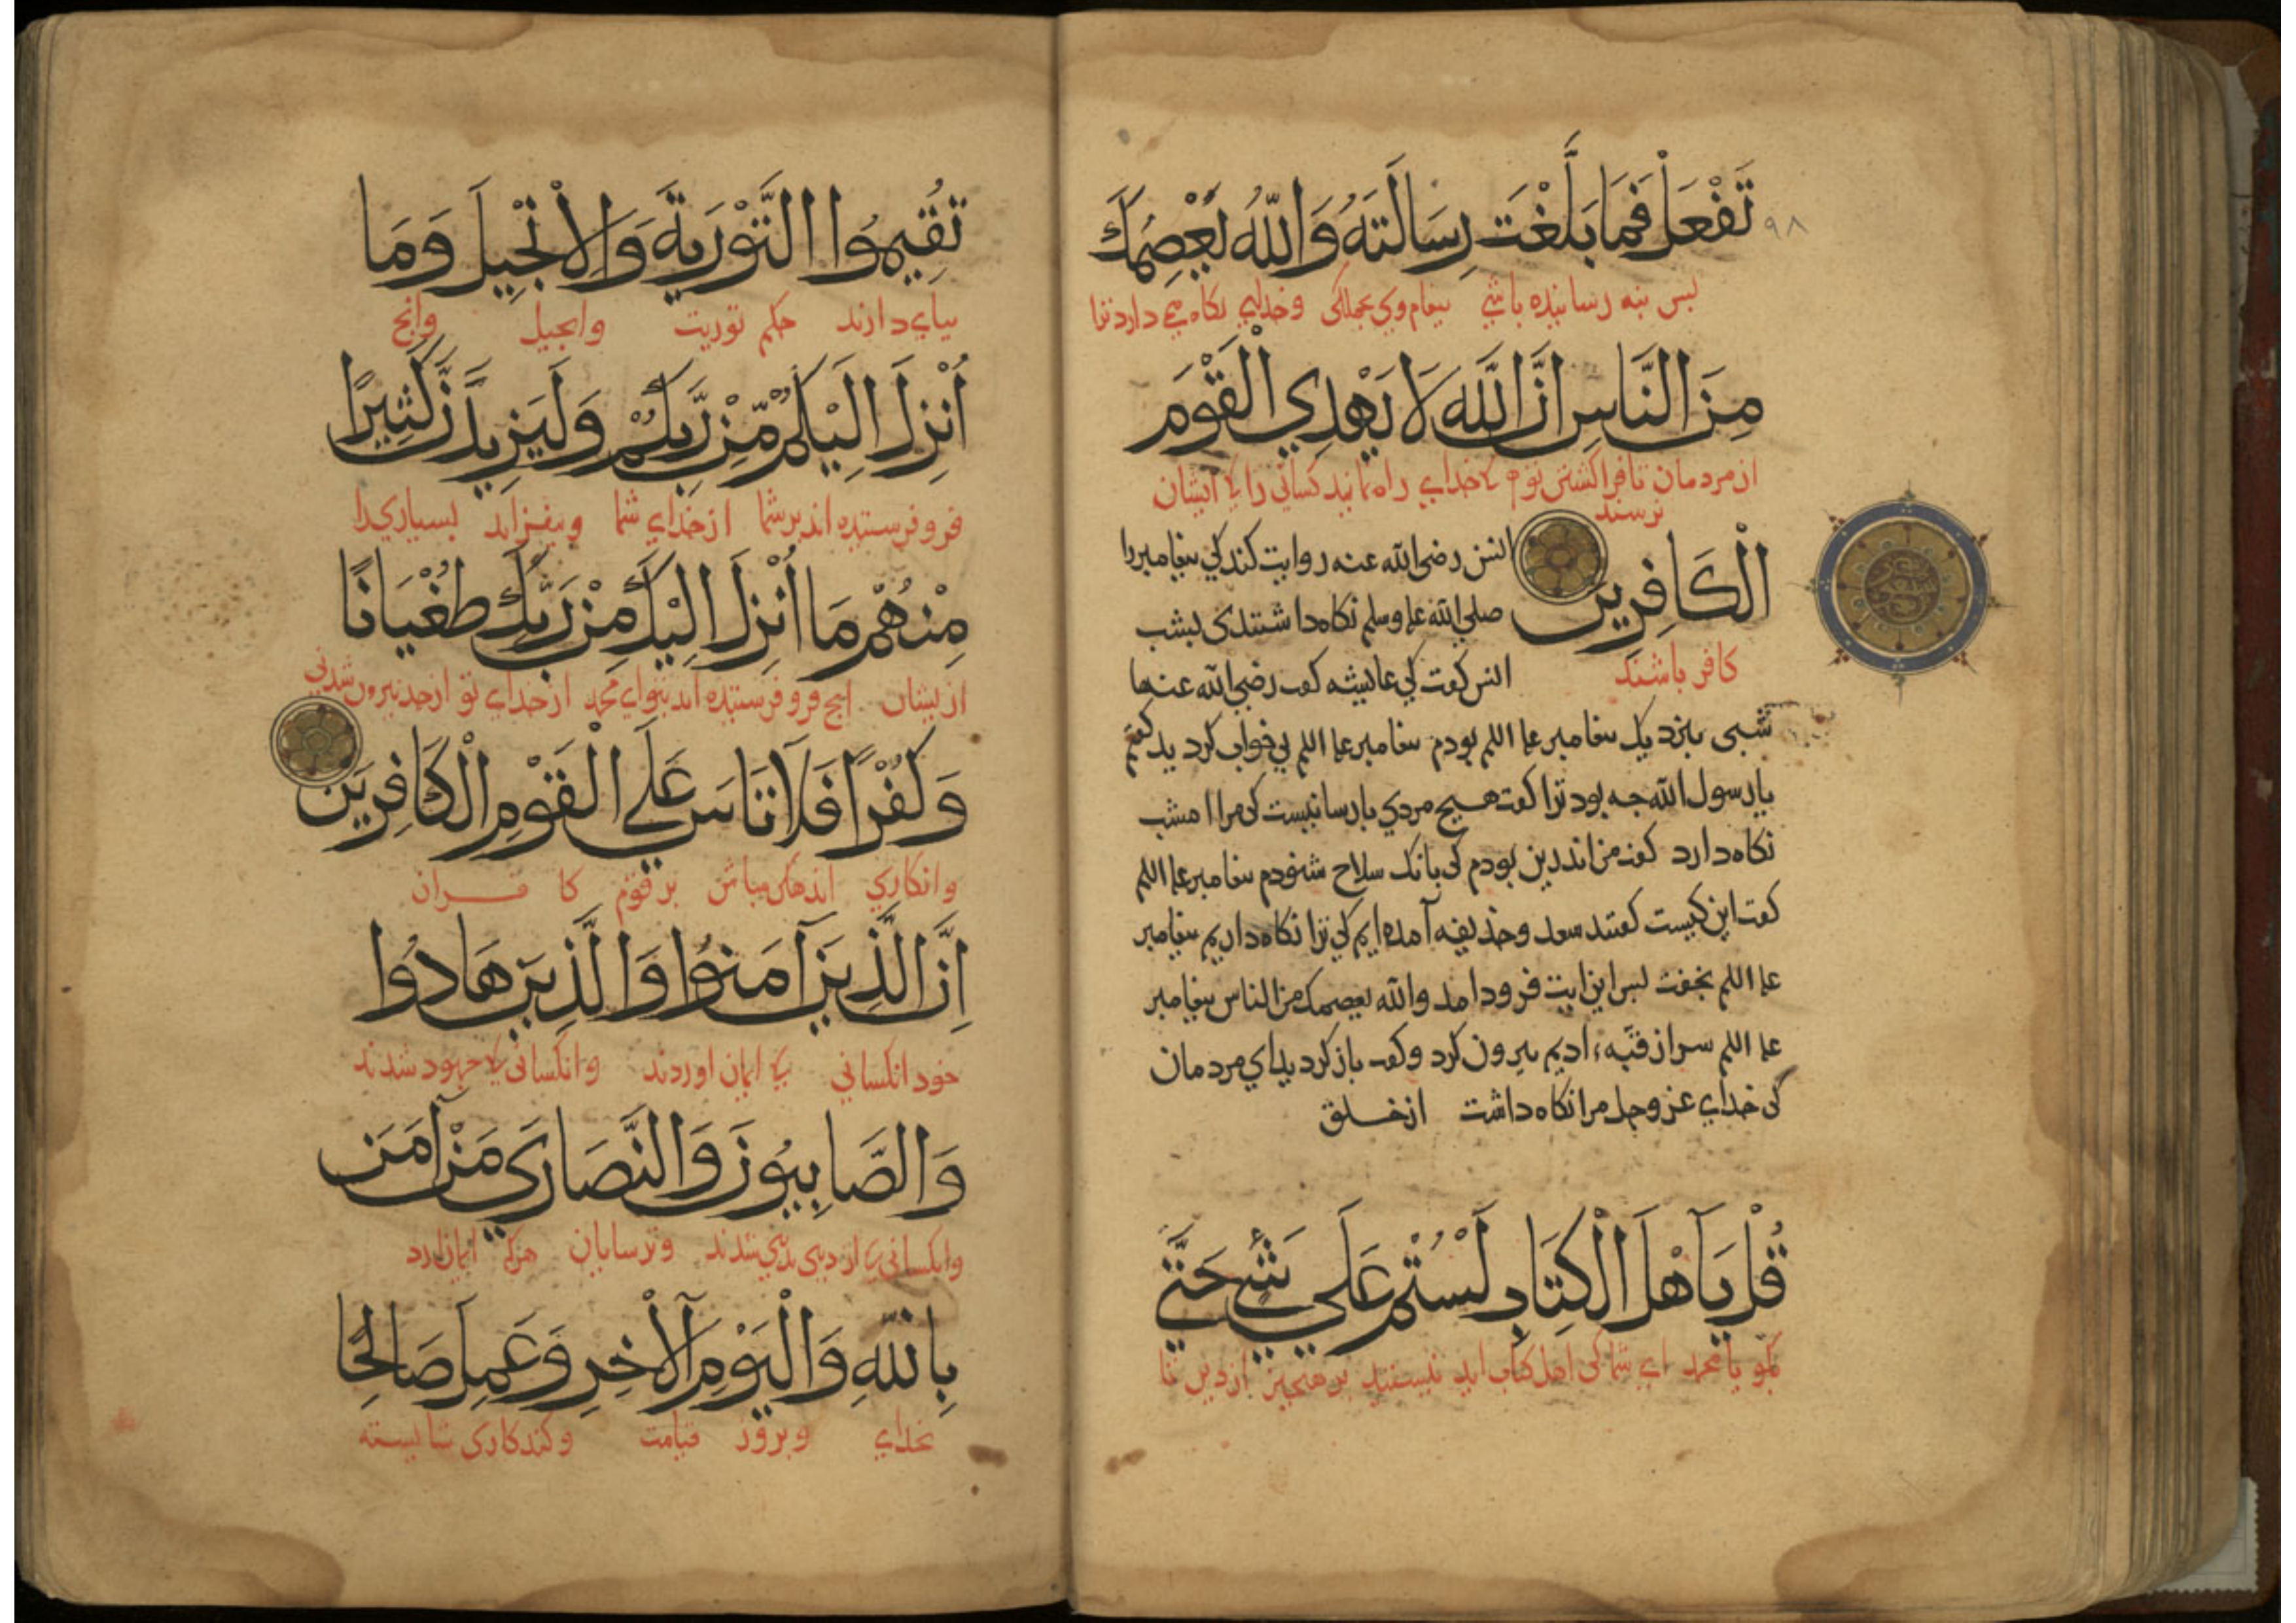 ٩٨
تَفْعَلْ فَمَا بَلَّغْتَ رِسَالَتَهُ وَاللّٰهُ يَعْصِمُكَ
بس نه رسانیده باشی بیغام وی بجملکی وخدای نکاه می دارد ترا
مِنَ النَّاسِ اِنَّ اللّٰهَ لَا يَهْدِي الْقَوْمَ
از مردمان تا فرا کشتن توم کخدای راه ننماید کسانی را کایشان
نرسند
الْكَافِرِينَ
کافر باشند
انس رضی الله عنه روایت کند کی بیغامبر را
صلی الله علیه وسلم نکاه داشتندی بشب
انس کفت کی عایشه کفت رضی الله عنها
شبی بنزدیک بیغامبر علیه السلم بودم بیغامبر علیه السلم بی خوابی کرد
یا رسول الله چه بود ترا کفت هیچ مردی بارسا نیست کی مرا امشب
نکاه دارد کفت من اندرین بودم کی بانک سلاح شنودم بیغامبر علیه السلم
کفت این کیست کفتند سعد وحذیفه آمده ایم کی ترا نکاه داریم بیغامبر
علیه السلم بخفت بس این ایت فرود امد والله یعصمک من الناس بیغامبر
علیه السلم سر از قبّهٔ ادیم بیرون کرد وکفت باز کردید ای مردمان
کی خدای عز وجل مرا نکاه داشت از خلق
قُلْ يَآ اَهْلَ الْكِتَابِ لَسْتُمْ عَلَي شَيْءٍ حَتَّي
بکو یا محمد ای شما کی اهل کتاب اید نیستید بر هیچیز از دین تا
تُقِيمُوا التَّوْرٰيةَ وَالْاِنْجِيلَ وَمَا
ببای دارند حکم توریت وانجیل وانچ
اُنْزِلَ اِلَيْكُمْ مِّنْ رَّبِّكُمْ وَلَيَزِيدَنَّ كَثِيرًا
فرو فرستیده اند بر شما از خدای شما وبیفزاید بسیاری را
مِنْهُمْ مَا اُنْزِلَ اِلَيْكَ مِنْ رَبِّكَ طُغْيَانًا
ازیشان انچ فرو فرستیده اند بتو ای محمد از خدای تو از حد بیرون شدنی
وَكُفْرًا فَلَا تَاسَ عَلَي الْقَوْمِ الْكَافِرِينَ
وانکاری اندهکن مباش بر قوم کافران
اِنَّ الَّذِينَ آمَنُوا وَالَّذِينَ هَادُوا
خود انکسانی کایمان اوردند وانکسانی کجهود شدند
وَالصَّابِيُونَ وَالنَّصَارَي مَنْ آمَنَ
وانکسانی کاز دینی بدینی شدند وترسایان هرک ایمان ارد
بِاللّٰهِ وَالْيَوْمِ الْآخِرِ وَعَمِلَ صَالِحًا
بخدای وبروز قیامت وکند کاری شایسته